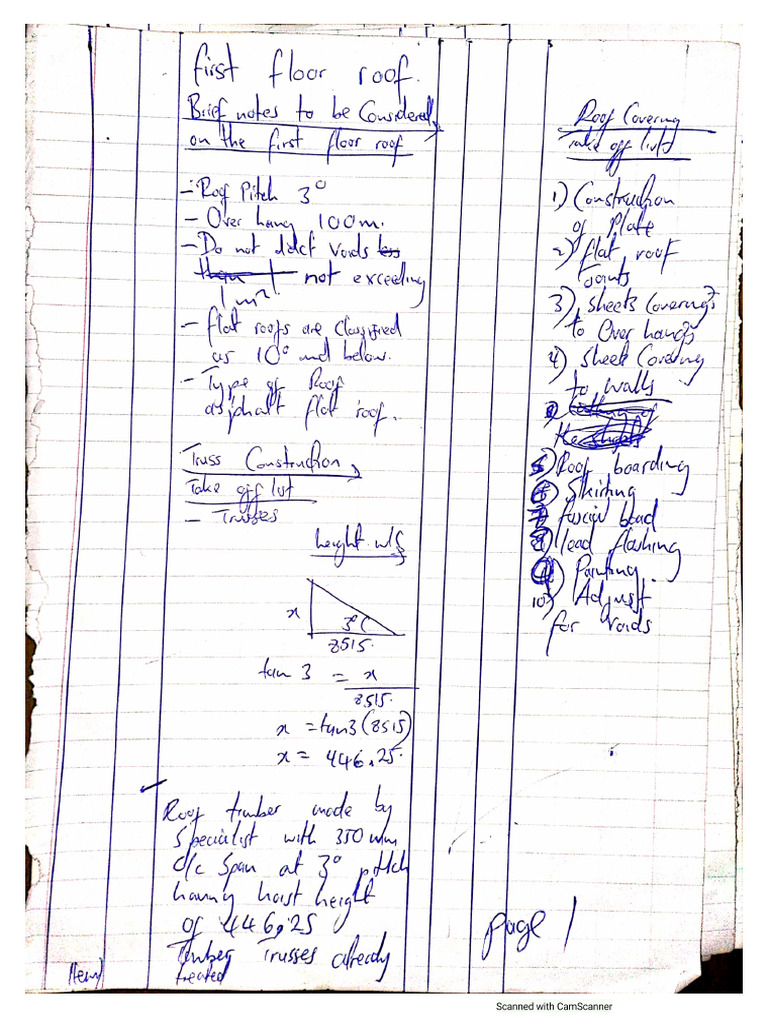 first floor roof.
Brief notes to be Considered
on the first floor roof
- Roof Pitch 3°
- Over hang 100m.
- Do not didct Voids less
than 1 not exceeding
1 m²
- flat roofs are Classified
as 10° and below.
- Type of Roof
asphalt flat roof.
Truss Construction,
Take off list
- Trusses
height wkgs
x
3°
8515.
tan 3 = x
8515.
x = tan3 (8515)
x = 446.25.
Roof timber made by
Specialist with 350 mm
c/c Span at 3° pitch
having hoist height
of 446.25
Timber Trusses already
treated
Item
Roof Covering
take off list
1) Construction
of Plate
2) flat roof
Joints
3) Sheets Coverings
to Over hangs
4) Sheet Covering
to walls
5) Roof boarding
6) Skirting
7) fascial boad
8) lead flashing
9) Painting
10) Adjust
for voids
page 1
Scanned with CamScanner